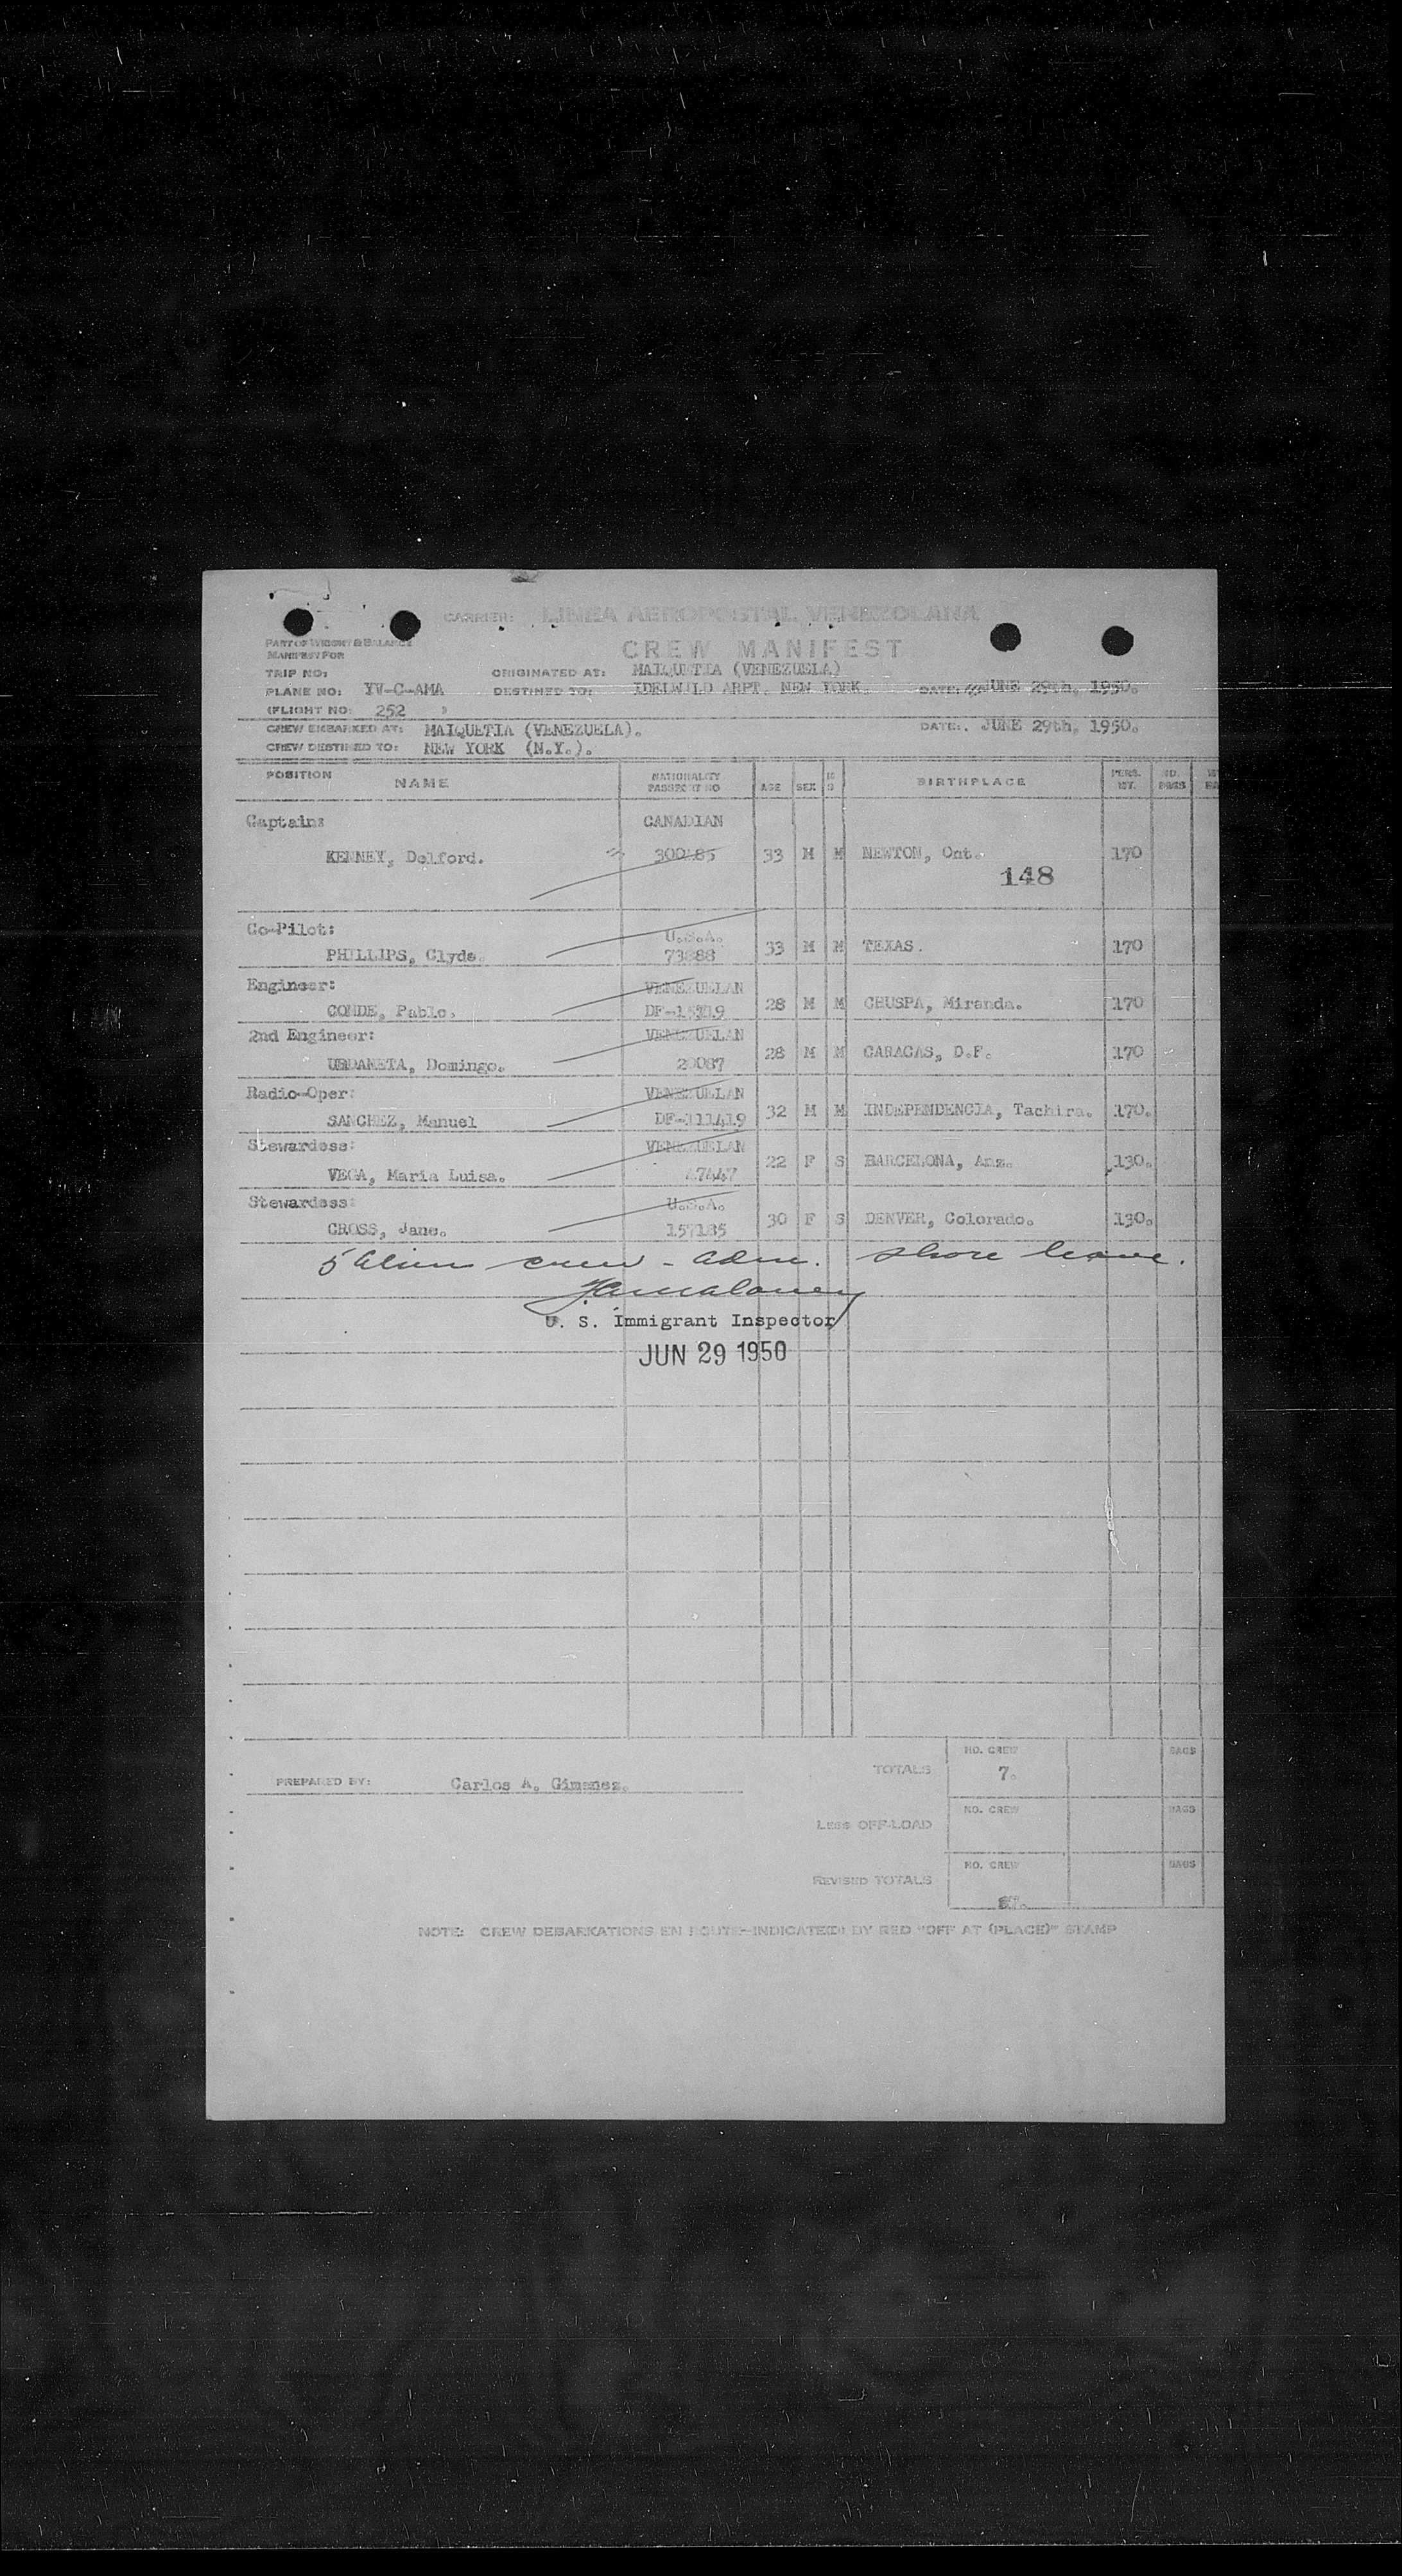 CARRIER: LINEA AEROPOSTAL VENEZOLANA
PART OF WEIGHT & BALANCE
MANIFEST FOR
CREW MANIFEST
TRIP NO: ORIGINATED AT: MAIQUETIA (VENEZUELA)
PLANE NO: YV-C-AMA DESTINED TO: IDELWILD ARPT. NEW YORK. DATE: JUNE 29th, 1950.
(FLIGHT NO: 252 )
CREW EMBARKED AT: MAIQUETIA (VENEZUELA). DATE: JUNE 29th, 1950.
CREW DESTINED TO: NEW YORK (N.Y.).
POSITION NAME NATIONALITY PASSPORT NO AGE SEX BIRTHPLACE PERS. WT. NO. BAGS
Captain: CANADIAN
KENNEY, Delford. 33 M M NEWTON, Ont. 170
148
Co-Pilot: U.S.A.
PHILLIPS, Clyde. 73888 33 M M TEXAS. 170
Engineer: VENEZUELAN
CONDE, Pablo. 28 M M CHUSPA, Miranda. 170
2nd Engineer: VENEZUELAN
URDANETA, Domingo. 20087 28 M M CARACAS, D.F. 170
Radio-Oper: VENEZUELAN
SANCHEZ, Manuel DF-111419 32 M M INDEPENDENCIA, Tachira. 170.
Stewardess: VENEZUELAN
VEGA, Maria Luisa. 22 F S BARCELONA, Anz. 130.
Stewardess: U.S.A.
CROSS, Jane. 157185 30 F S DENVER, Colorado. 130.
5 Alien crew - adm. shore leave.
U. S. Immigrant Inspector
JUN 29 1950
NO. CREW BAGS
TOTALS 7.
PREPARED BY: Carlos A. Gimenez.
NO. CREW BAGS
LESS OFF-LOAD
NO. CREW BAGS
REVISED TOTALS
NOTE: CREW DEBARKATIONS EN ROUTE-INDICATED BY RED "OFF AT (PLACE)" STAMP